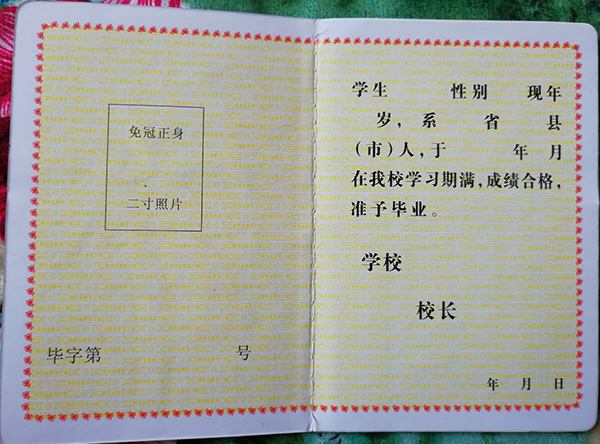 免冠正身
二寸照片
毕字第 号
学生 性别 现年
岁，系 省 县
（市）人，于 年 月
在我校学习期满，成绩合格，
准予毕业。
学校
校长
年 月 日